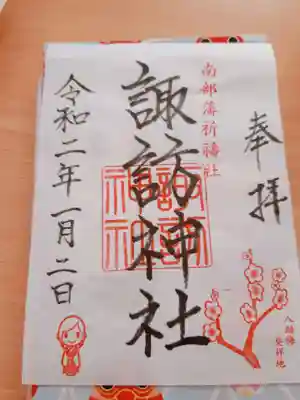 奉拝
南部藩祈祷社
諏訪神社
諏訪神社
令和二年一月二日
八助梅
発祥地